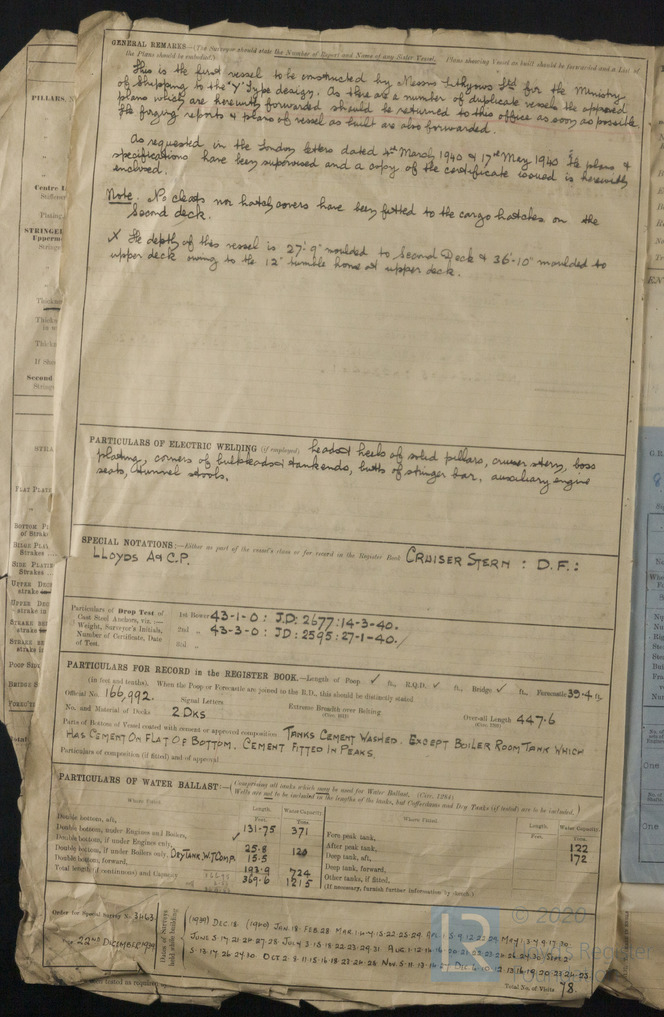 GENERAL REMARKS—(The Surveyor should state the Number of Report and Name of any Sister Vessel. Plans showing Vessel as built should be forwarded and a List of
the Plans should be embodied.)
This is the first vessel to be constructed by Messrs Lithgows Ltd for the Ministry
of Shipping to the "Y" Type design. As there are a number of duplicate vessels the approved
plans which are herewith forwarded should be returned to this office as soon as possible.
The forging reports & plans of vessel as built are also forwarded.
As requested in the London letters dated 4th March 1940 & 17th May 1940 the plans &
specifications have been supervised and a copy of the certificate issued is herewith
enclosed.
Note. No cleats nor hatch covers have been fitted to the cargo hatches on the
second deck.
X The depth of this vessel is 27'-9" moulded to Second Deck & 36'-10" moulded to
upper deck owing to the 12" tumble home at upper deck.
PARTICULARS OF ELECTRIC WELDING (if employed) heads & heels of solid pillars, cruiser stern, boss
plating, corners of bulkheads & tank ends, butts of stringer bar, auxiliary engine
seats, tunnel stools.
SPECIAL NOTATIONS:—Either as part of the vessel's class or for record in the Register Book CRUISER STERN : D.F. :
LLOYDS A & C.P.
Particulars of Drop Test of
Cast Steel Anchors, viz. :—
Weight, Surveyor's Initials,
Number of Certificate, Date
of Test.
1st Bower 43-1-0 : J.D: 2677: 14-3-40.
2nd „ 43-3-0 : JD: 2595: 27-1-40.
3rd „
PARTICULARS FOR RECORD in the REGISTER BOOK.—Length of Poop ✓ ft., R.Q.D. ✓ ft., Bridge ✓ ft., Forecastle 39.4 ft.
(in feet and tenths). When the Poop or Forecastle are joined in the R.D., this should be distinctly stated
Official No. 166,992. Signal Letters Extreme Breadth over Belting Over-all Length 447.6
No. and Material of Decks 2 DKS
Parts of Bottom of Vessel coated with cement or approved composition TANKS CEMENT WASHED. EXCEPT BOILER ROOM TANK WHICH
HAS CEMENT ON FLAT OF BOTTOM. CEMENT FITTED IN PEAKS.
Particulars of composition (if fitted) and of approval
PARTICULARS OF WATER BALLAST:— (Comprising all tanks which may be used for Water Ballast. (Circ. 1284)
Wells are not to be included in the lengths of the tanks, but Cofferdams and Dry Tanks (if tested) are to be included.)
Where Fitted. Length. Water Capacity. Where Fitted. Length. Water Capacity.
Feet. Tons. Feet. Tons.
Double bottom, aft, 131.75 371 Fore peak tank,
Double bottom, under Engines and Boilers, After peak tank, 122
Double bottom, if under Engines only, 25.8 120 Deep tank, aft, 172
Double bottom, if under Boilers only, DRY TANK. W.T COMP. 15.5 Deep tank, forward,
Double bottom, forward, 193.9 724 Other tanks, if fitted,
Total length (if continuous) and Capacity 369.6 1215 (If necessary, furnish further information by sketch.)
Order for Special Survey No. 3463
22ND DECEMBER 1939
Dates of Surveys held while building
(1939) DEC 18. (1940) JAN. 18. FEB. 28
Total No. of Visits 78.
© 2020
PILLARS,
Second
One
One